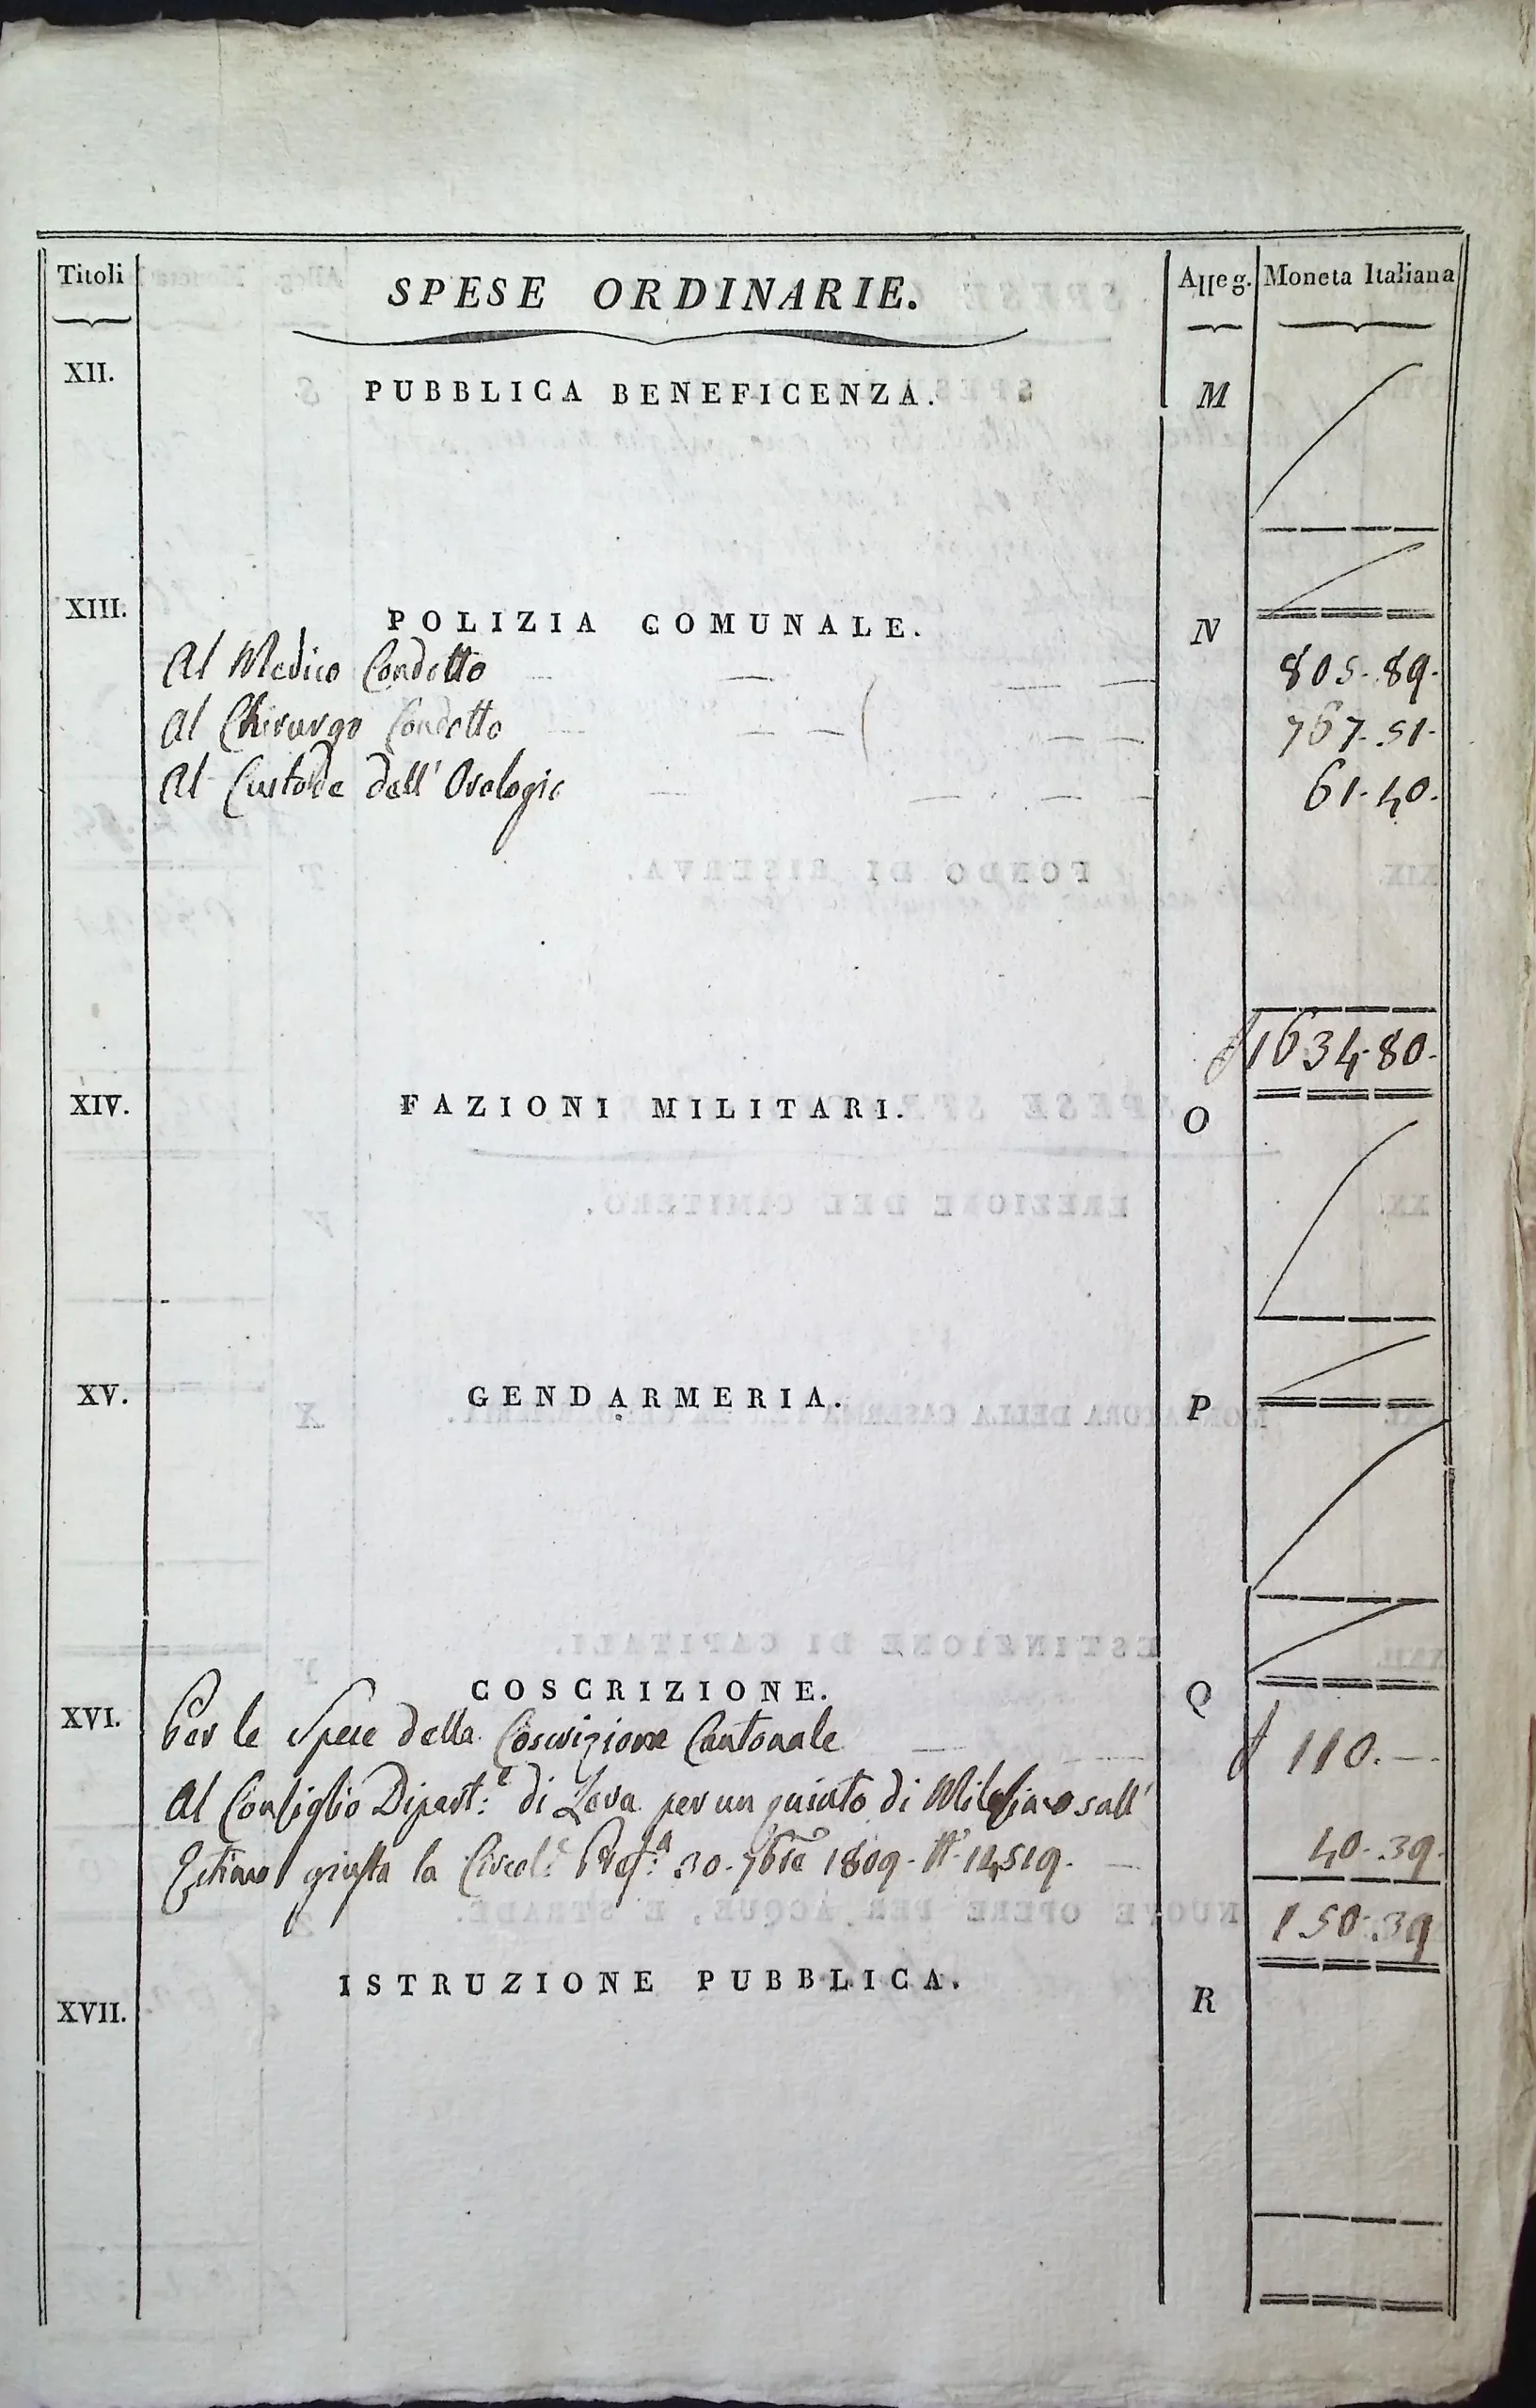 Titoli SPESE ORDINARIE. Alleg. Moneta Italiana
XII. PUBBLICA BENEFICENZA. M
XIII. POLIZIA COMUNALE. N
Al Medico Condotto 805.89.
Al Chirurgo Condotto 767.51.
Al Custode dell' Orologio 61.40.
1634.80.
XIV. FAZIONI MILITARI. O
XV. GENDARMERIA. P
XVI. COSCRIZIONE. Q
Per le Spese della Coscrizione Cantonale 110.
Al Consiglio Dipart:e di Leva per un quinto di Millesimo sull'
Estimo giusta la Circol:e Pref:a 30. 7bre 1809. N. 14519. 40.39.
150.39
XVII. ISTRUZIONE PUBBLICA. R